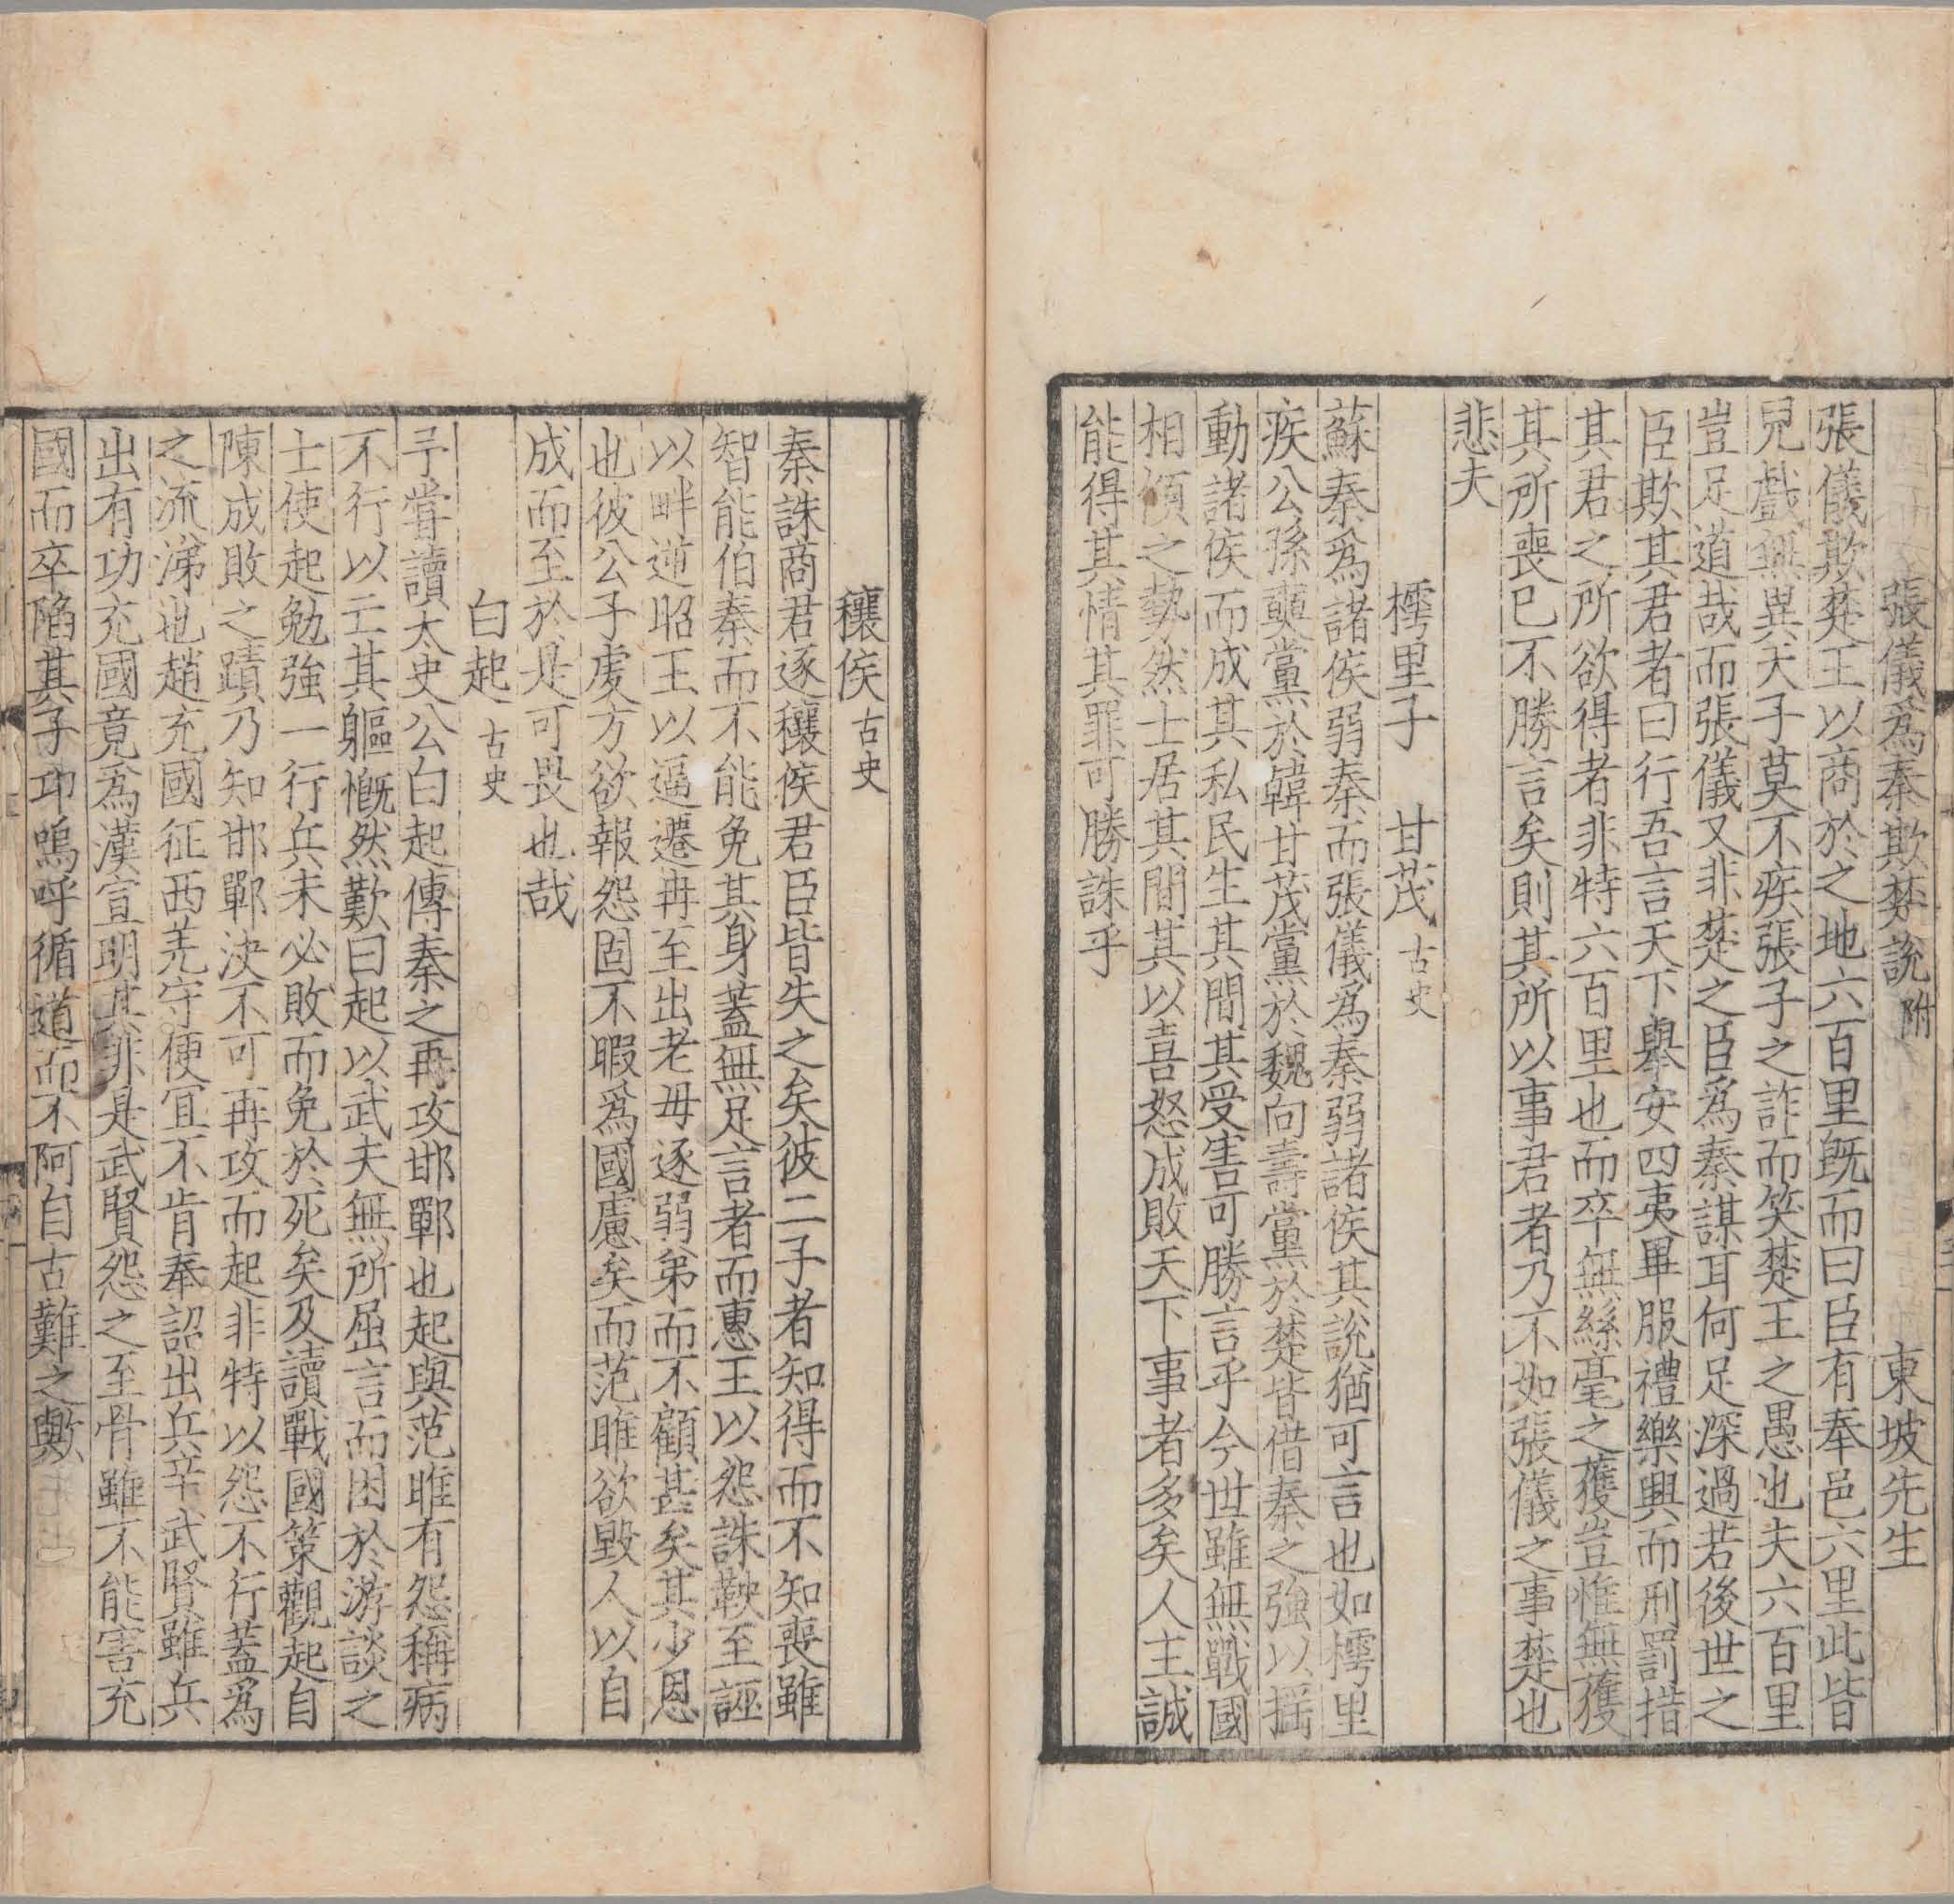 張儀爲秦欺楚說附 東坡先生
張儀欺楚王以商於之地六百里旣而曰臣有奉邑六里此皆
兒戲無異天子莫不疾張子之詐而笑楚王之愚也夫六百里
豈足道哉而張儀又非楚之臣爲秦謀耳何足深過若後世之
臣欺其君者曰行吾言天下舉安四夷畢服禮樂興而刑罰措
其君之所欲得者非特六百里也而卒無絲毫之獲豈惟無獲
其所喪已不勝言矣則其所以事君者乃不如張儀之事楚也
悲夫
樗里子 甘茂 古史
蘇秦爲諸侯弱秦而張儀爲秦弱諸侯其說猶可言也如樗里
疾公孫奭黨於韓甘茂黨於魏向壽黨於楚皆借秦之強以揺
動諸侯而成其私民生其間其受害可勝言乎今世雖無戰國
相傾之勢然士居其間其以喜怒成敗天下事者多矣人主誠
能得其情其罪可勝誅乎
穰侯 古史
秦誅商君逐穰侯君臣皆失之矣彼二子者知得而不知喪雖
智能伯秦而不能免其身蓋無足言者而惠王以怨誅鞅至誣
以畔逆昭王以逼遷冉至出老母逐弱弟而不顧甚矣其少恩
也彼公子虔方欲報怨固不暇爲國慮矣而范雎欲毀人以自
成而至於是可畏也哉
白起 古史
予嘗讀太史公白起傳秦之再攻邯鄲也起與范雎有怨稱病
不行以亡其軀慨然歎曰起以武夫無所屈言而困於游談之
士使起勉強一行兵未必敗而免於死矣及讀戰國策觀起自
陳成敗之蹟乃知邯鄲決不可再攻而起非特以怨不行蓋爲
之流涕也趙充國征西羌守便宜不肯奉詔出兵辛武賢雖兵
出有功充國竟爲漢宣明其非是武賢怨之至骨雖不能害充
國而卒陷其子卭嗚呼循道而不阿自古難之歟